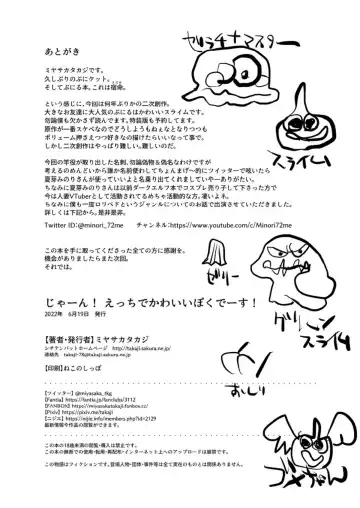 あとがき
ミヤサカタカジです。
久しぶりのぷにケット。
そしてぷにる本。これは宿命。
という感じに、今回は何年ぶりかの二次創作。
大きなお友達に大人気のぷにるはかわいいスライムです。
勿論僕も欠かさず読んでます。特装版も予約してます。
原作が一番スケベなのでどうしようもねぇなとなりつつも
ボリューム押さえつつ好きなの描けたらいいなって事で。
しかし二次創作はやっぱり難しい。難しいのだ。
今回の竿役が取り出した名刺、勿論偽物&偽名なわけですが
考えるのめんどいから誰か名前使わしてちょんまげ~的に ツイッターで呟いたら
夏芽みのりさんが使っていいよと名乗り出てくれましていやーありがたい。
ちなみに夏芽みのりさんは以前ダークエルフ本でコスプレ売り子して下さった方で
今は人妻VTuberとして活動されてるめちゃ活動的な方。凄いよネ。
ちなみに僕も一度ロリペドというジャンルについてのお話で出演させていただきました。
詳しくは下記から。是非是非。
Twitter ID：@minori_72me チャンネル：https://www.youtube.com/c/Minori72me
この本を手に取ってくださった全ての方に感謝を。
機会がありましたらまた次回。
それでは。
じゃーん！ えっちでかわいいぼくでーす！
2022年 6月19日 発行
【著者・発行者】ミヤサカタカジ
シチテンバットホームページ http://takaji.sakura.ne.jp/
連絡先 takaji-78@takaji.sakura.ne.jp
【印刷】ねこのしっぽ
【ツイッター】@miyasaka_tkg
【Fantia】https://fantia.jp/fanclubs/3112
【FANBOX】https://miyasakatakaji.fanbox.cc/
【Pixiv】https://pixiv.me/takaji
【ニジエ】https://nijie.info/members.php?id=2129
最新情報や作品の閲覧ができます。
この本の18歳未満の閲覧・購入は禁止です。
この本の無断での使用・転用・再配布・インターネット上へのアップロードは厳禁です。
この物語はフィクションです。登場人物・団体・事件等は全て実在のものとは関係ありません。
ゼラチナマスター
スライム
ゼリー
グリーンスライム
おしり